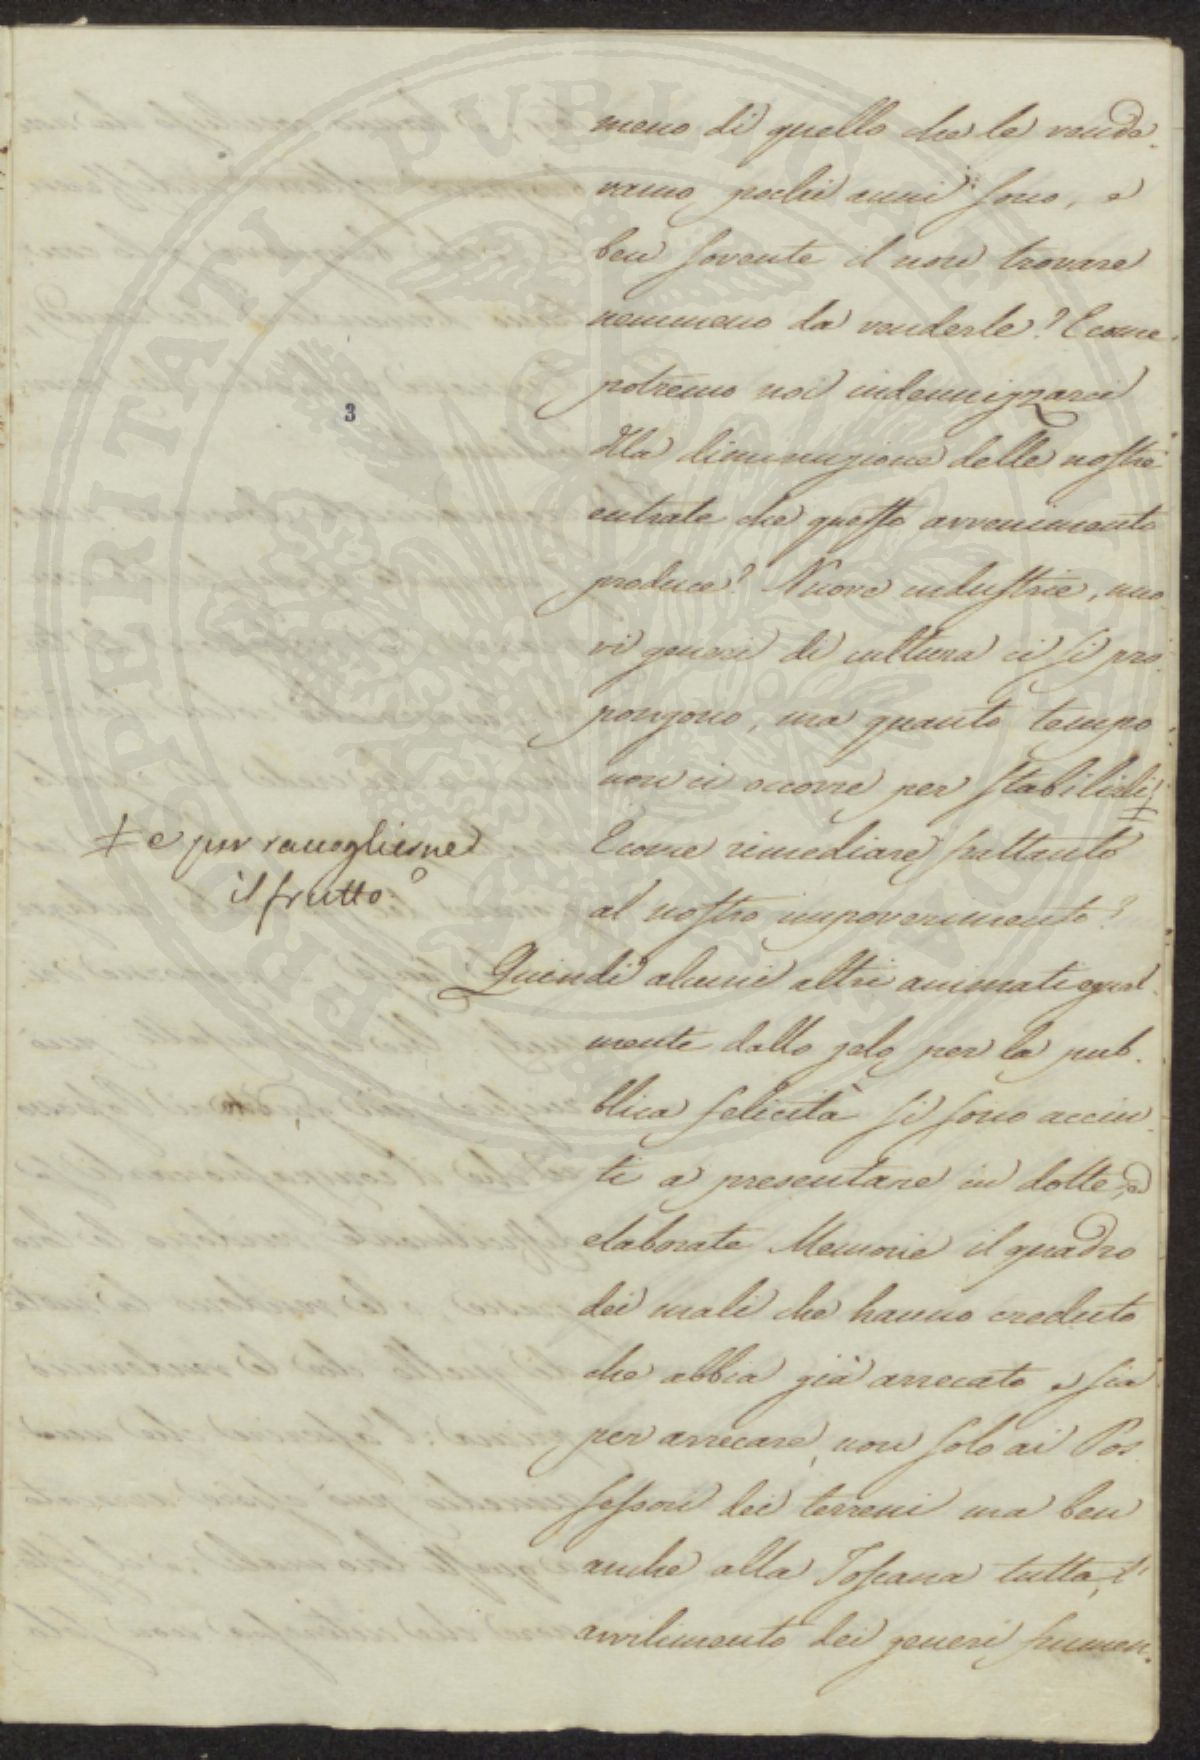 meno di quello che le vende-
vamo pochi anni sono, e
ben sovente il non trovare
nemmeno da venderle? E come
potremo noi indennizzarci
della diminuzione delle nostre
entrate che questo avvenimento
produce? Nuove industrie, nuo-
vi generi di cultura ci si pro-
pongono, ma quanto tempo
non ci occorre per stabilirli ‡
‡ e per raccoglierne
il frutto?
E come rimediare frattanto
al nostro impoverimento?
Quindi alcuni altri animati egual-
mente dallo zelo per la pub-
blica felicità si sono accin-
ti a presentare in dotte, ed
elaborate Memorie il quadro
dei mali che hanno creduto
che abbia già arrecato e sia
per arrecare, non solo ai Pos-
sessori dei terreni ma ben
anche alla Toscana tutta, l'
avvilimento dei generi frumen-
3
PROSPERITATI PVBLICAE